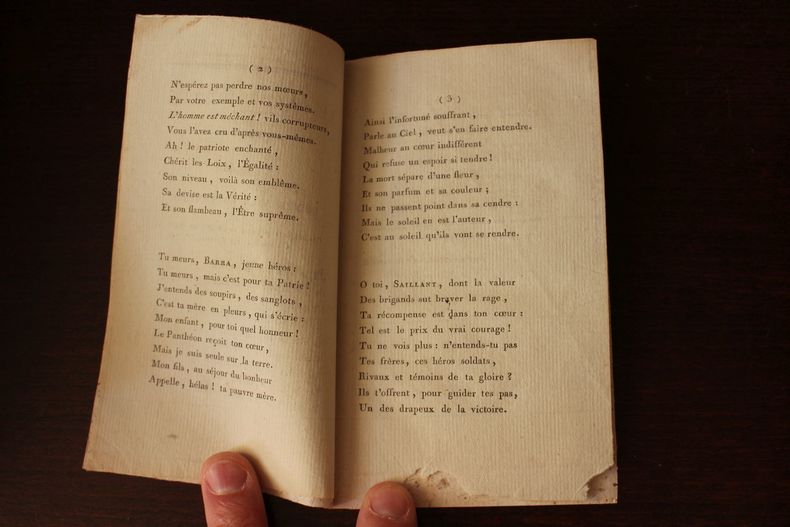 ( 2 )
N'espérez pas perdre nos mœurs,
Par votre exemple et vos systèmes.
L'homme est méchant ! vils corrupteurs,
Vous l'avez cru d'après vous-mêmes.
Ah ! le patriote enchanté,
Chérit les Loix, l'Égalité :
Son niveau, voilà son emblême.
Sa devise est la Vérité :
Et son flambeau, l'Être suprême.
Tu meurs, BARRA, jeune héros :
Tu meurs, mais c'est pour ta Patrie !
J'entends des soupirs, des sanglots,
C'est ta mère en pleurs, qui s'écrie :
Mon enfant, pour toi quel honneur !
Le Panthéon reçoit ton cœur,
Mais je suis seule sur la terre.
Mon fils, au séjour du bonheur
Appelle, hélas ! ta pauvre mère.
( 3 )
Ainsi l'infortuné souffrant,
Parle au Ciel, veut s'en faire entendre.
Malheur au cœur indifférent
Qui refuse un espoir si tendre !
La mort sépare d'une fleur,
Et son parfum et sa couleur ;
Ils ne passent point dans sa cendre :
Mais le soleil en est l'auteur,
C'est au soleil qu'ils vont se rendre.
O toi, SAILLANT, dont la valeur
Des brigands sut braver la rage,
Ta récompense est dans ton cœur :
Tel est le prix du vrai courage !
Tu ne vois plus : n'entends-tu pas
Tes frères, ces héros soldats,
Rivaux et témoins de ta gloire ?
Ils t'offrent, pour guider tes pas,
Un des drapeux de la victoire.